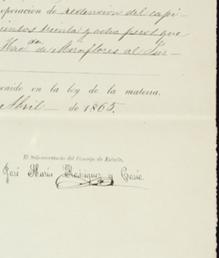 operacion de redencion del capi-
cientos treinta y ocho pesos que
de Miraflores al
cuerdo en la ley de la materia.
Abril - de 1865.
El Subsecretario del Consejo de Estado,
José María Rodriguez y Cosio